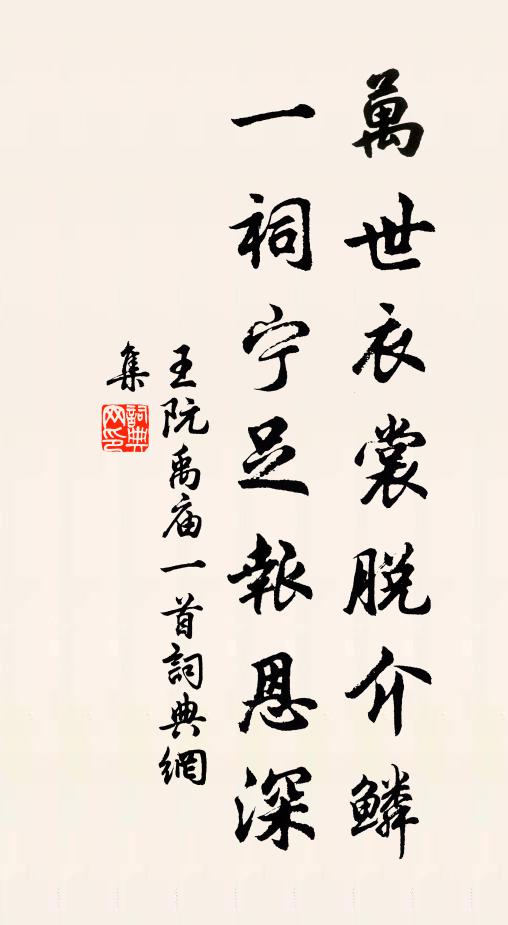 萬世衣裳脱介鱗
一祠宁足報恩深
王阮禹庙一首詞典網
集
詞典网印